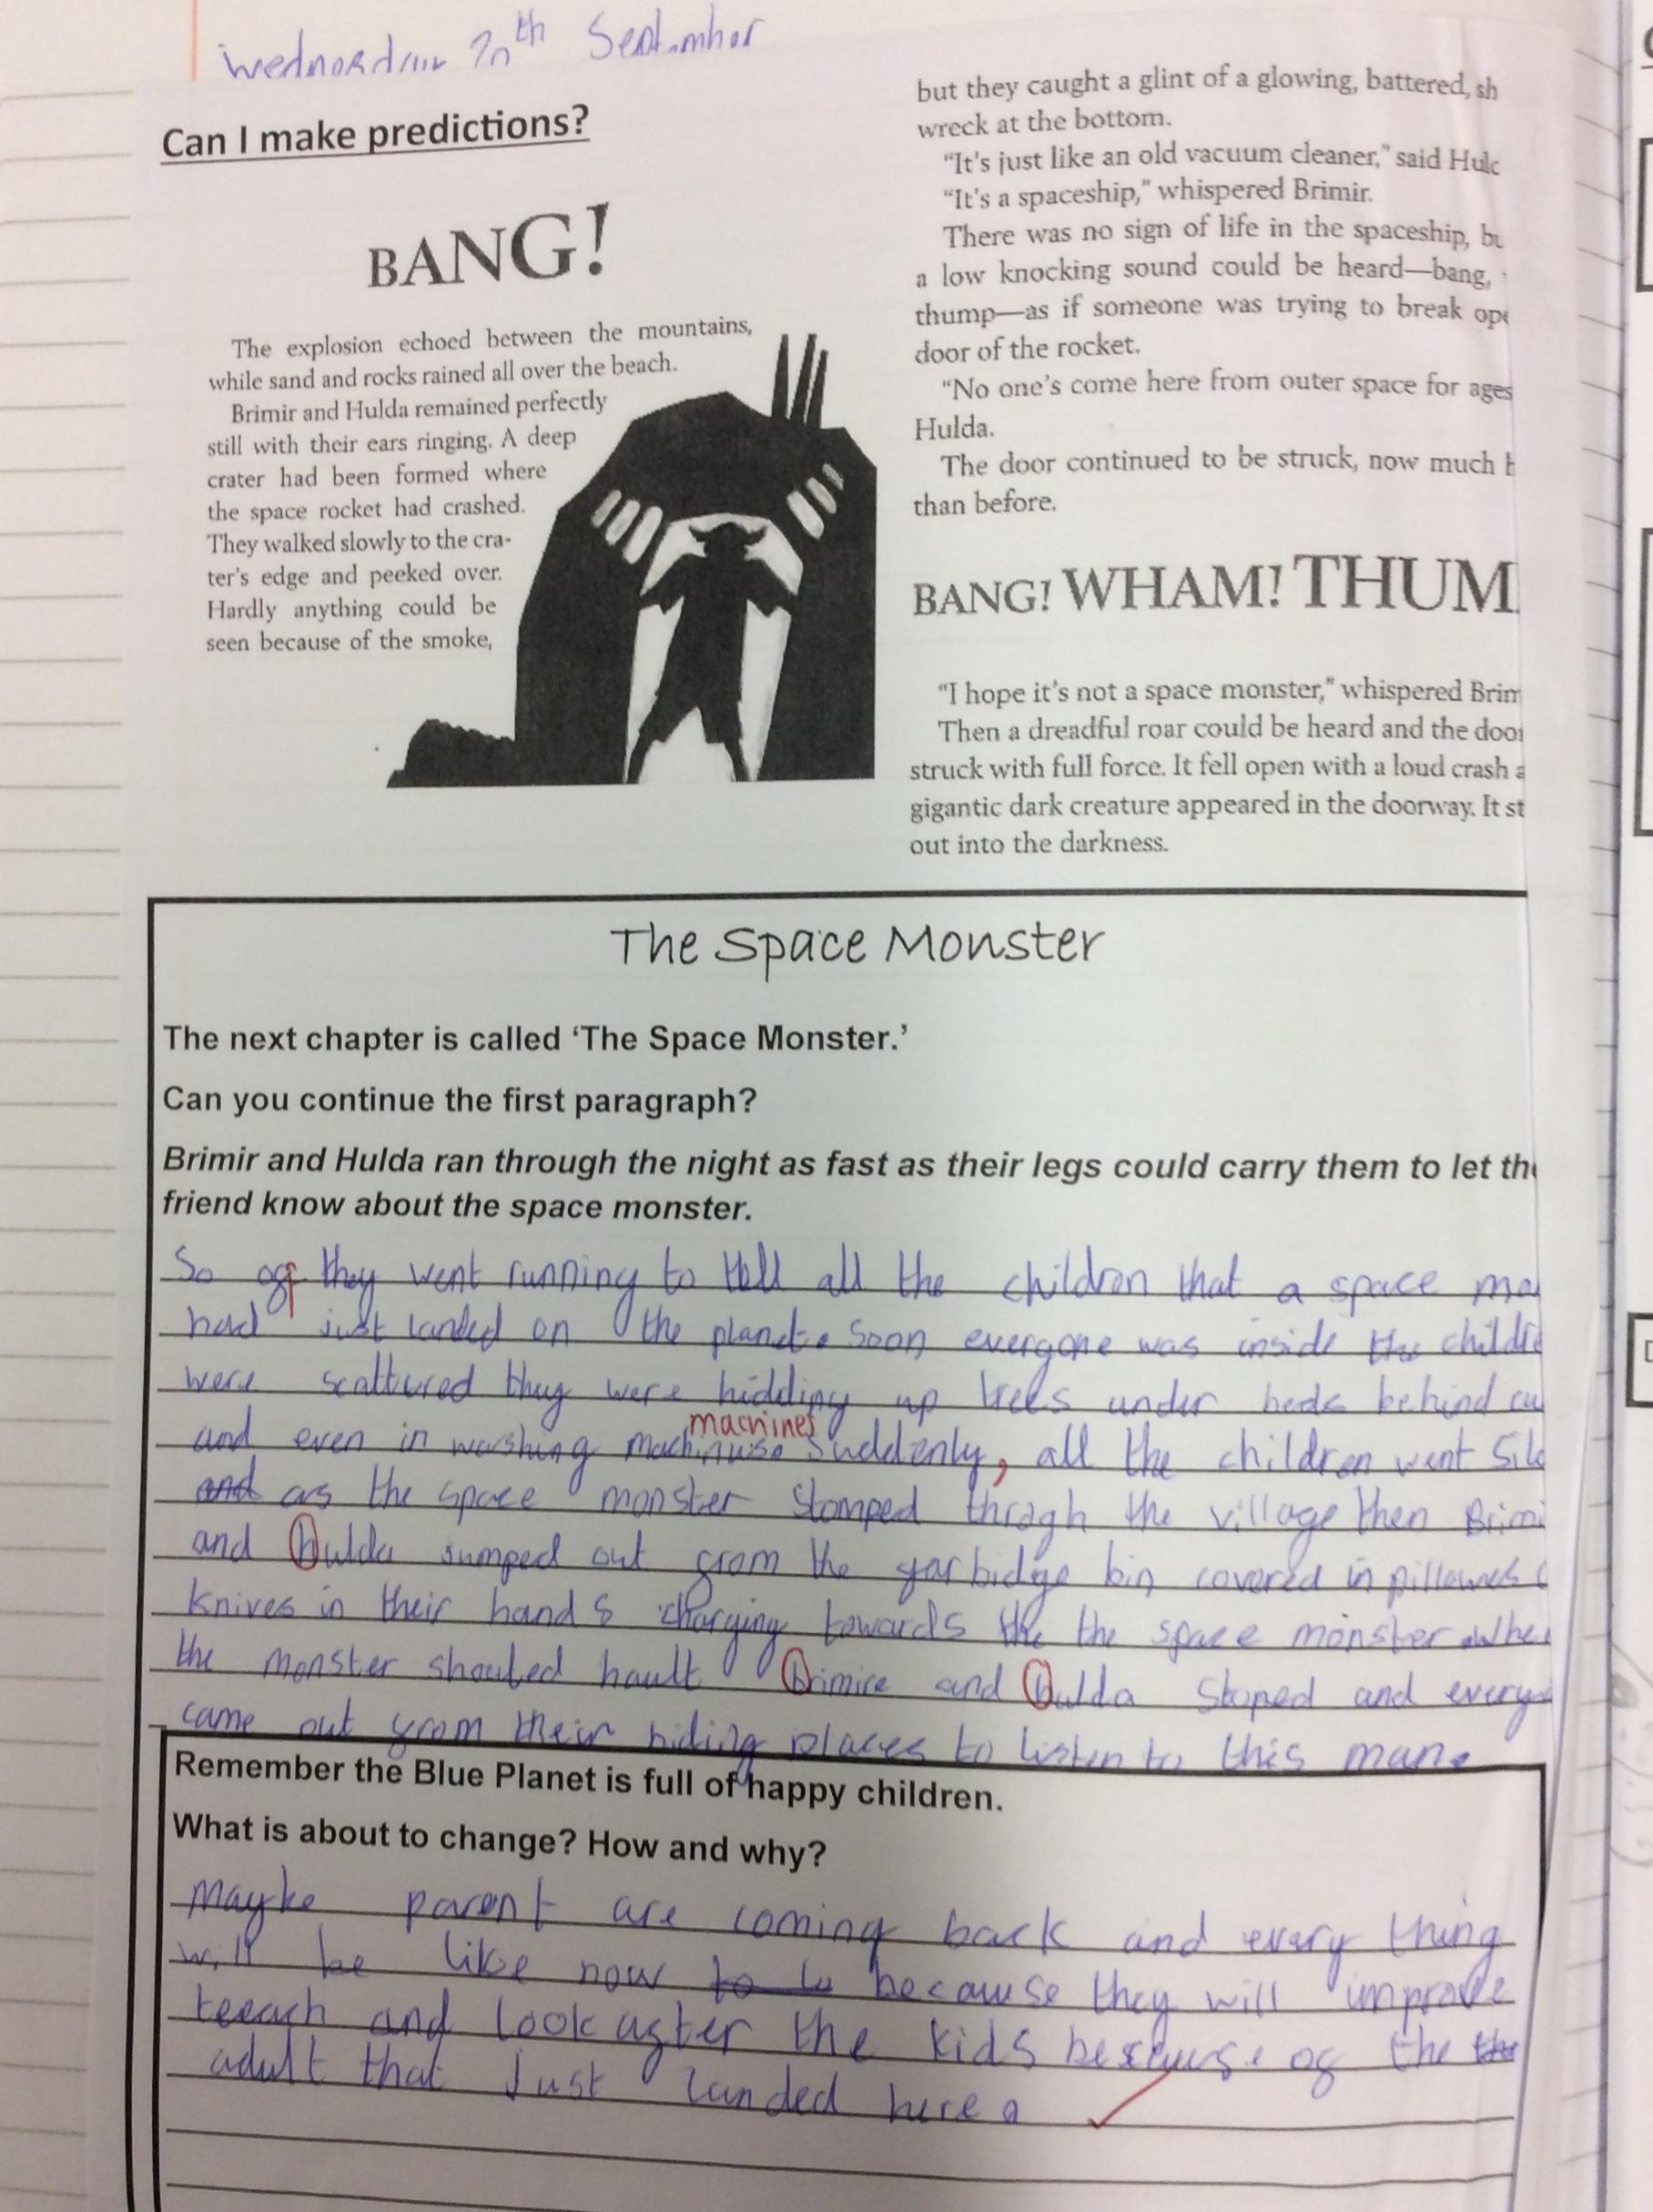 Wednesday 20th September
Can I make predictions?
BANG!
The explosion echoed between the mountains,
while sand and rocks rained all over the beach.
Brimir and Hulda remained perfectly
still with their ears ringing. A deep
crater had been formed where
the space rocket had crashed.
They walked slowly to the cra-
ter's edge and peeked over.
Hardly anything could be
seen because of the smoke,
but they caught a glint of a glowing, battered, sh
wreck at the bottom.
"It's just like an old vacuum cleaner," said Hulc
"It's a spaceship," whispered Brimir.
There was no sign of life in the spaceship, bu
a low knocking sound could be heard—bang,
thump—as if someone was trying to break ope
door of the rocket.
"No one's come here from outer space for ages
Hulda.
The door continued to be struck, now much
than before.
BANG! WHAM! THUM
"I hope it's not a space monster," whispered Brim
Then a dreadful roar could be heard and the door
struck with full force. It fell open with a loud crash a
gigantic dark creature appeared in the doorway. It st
out into the darkness.
The Space Monster
The next chapter is called 'The Space Monster.'
Can you continue the first paragraph?
Brimir and Hulda ran through the night as fast as their legs could carry them to let the
friend know about the space monster.
So off they went running to tell all the children that a space mo
had just landed on the planet. Soon evergone was inside the childre
were scattured they were hidding up trees under beds behind cu
machines
and even in washing Suddenly, all the children went Sile
and as the space monster stomped thragh the village then Brimi
and hulda jumped out from the garbidge bin covered in pillowes
knives in their hands charging towards the the space monster. whe
the monster shouted hault brimire and hulda stoped and every
came out from their hiding places to listen to this man.
Remember the Blue Planet is full of happy children.
What is about to change? How and why?
maybe parent are coming back and every thing
will be like now to because they will improve
teeach and look after the kids because of the the
adult that just landed here.